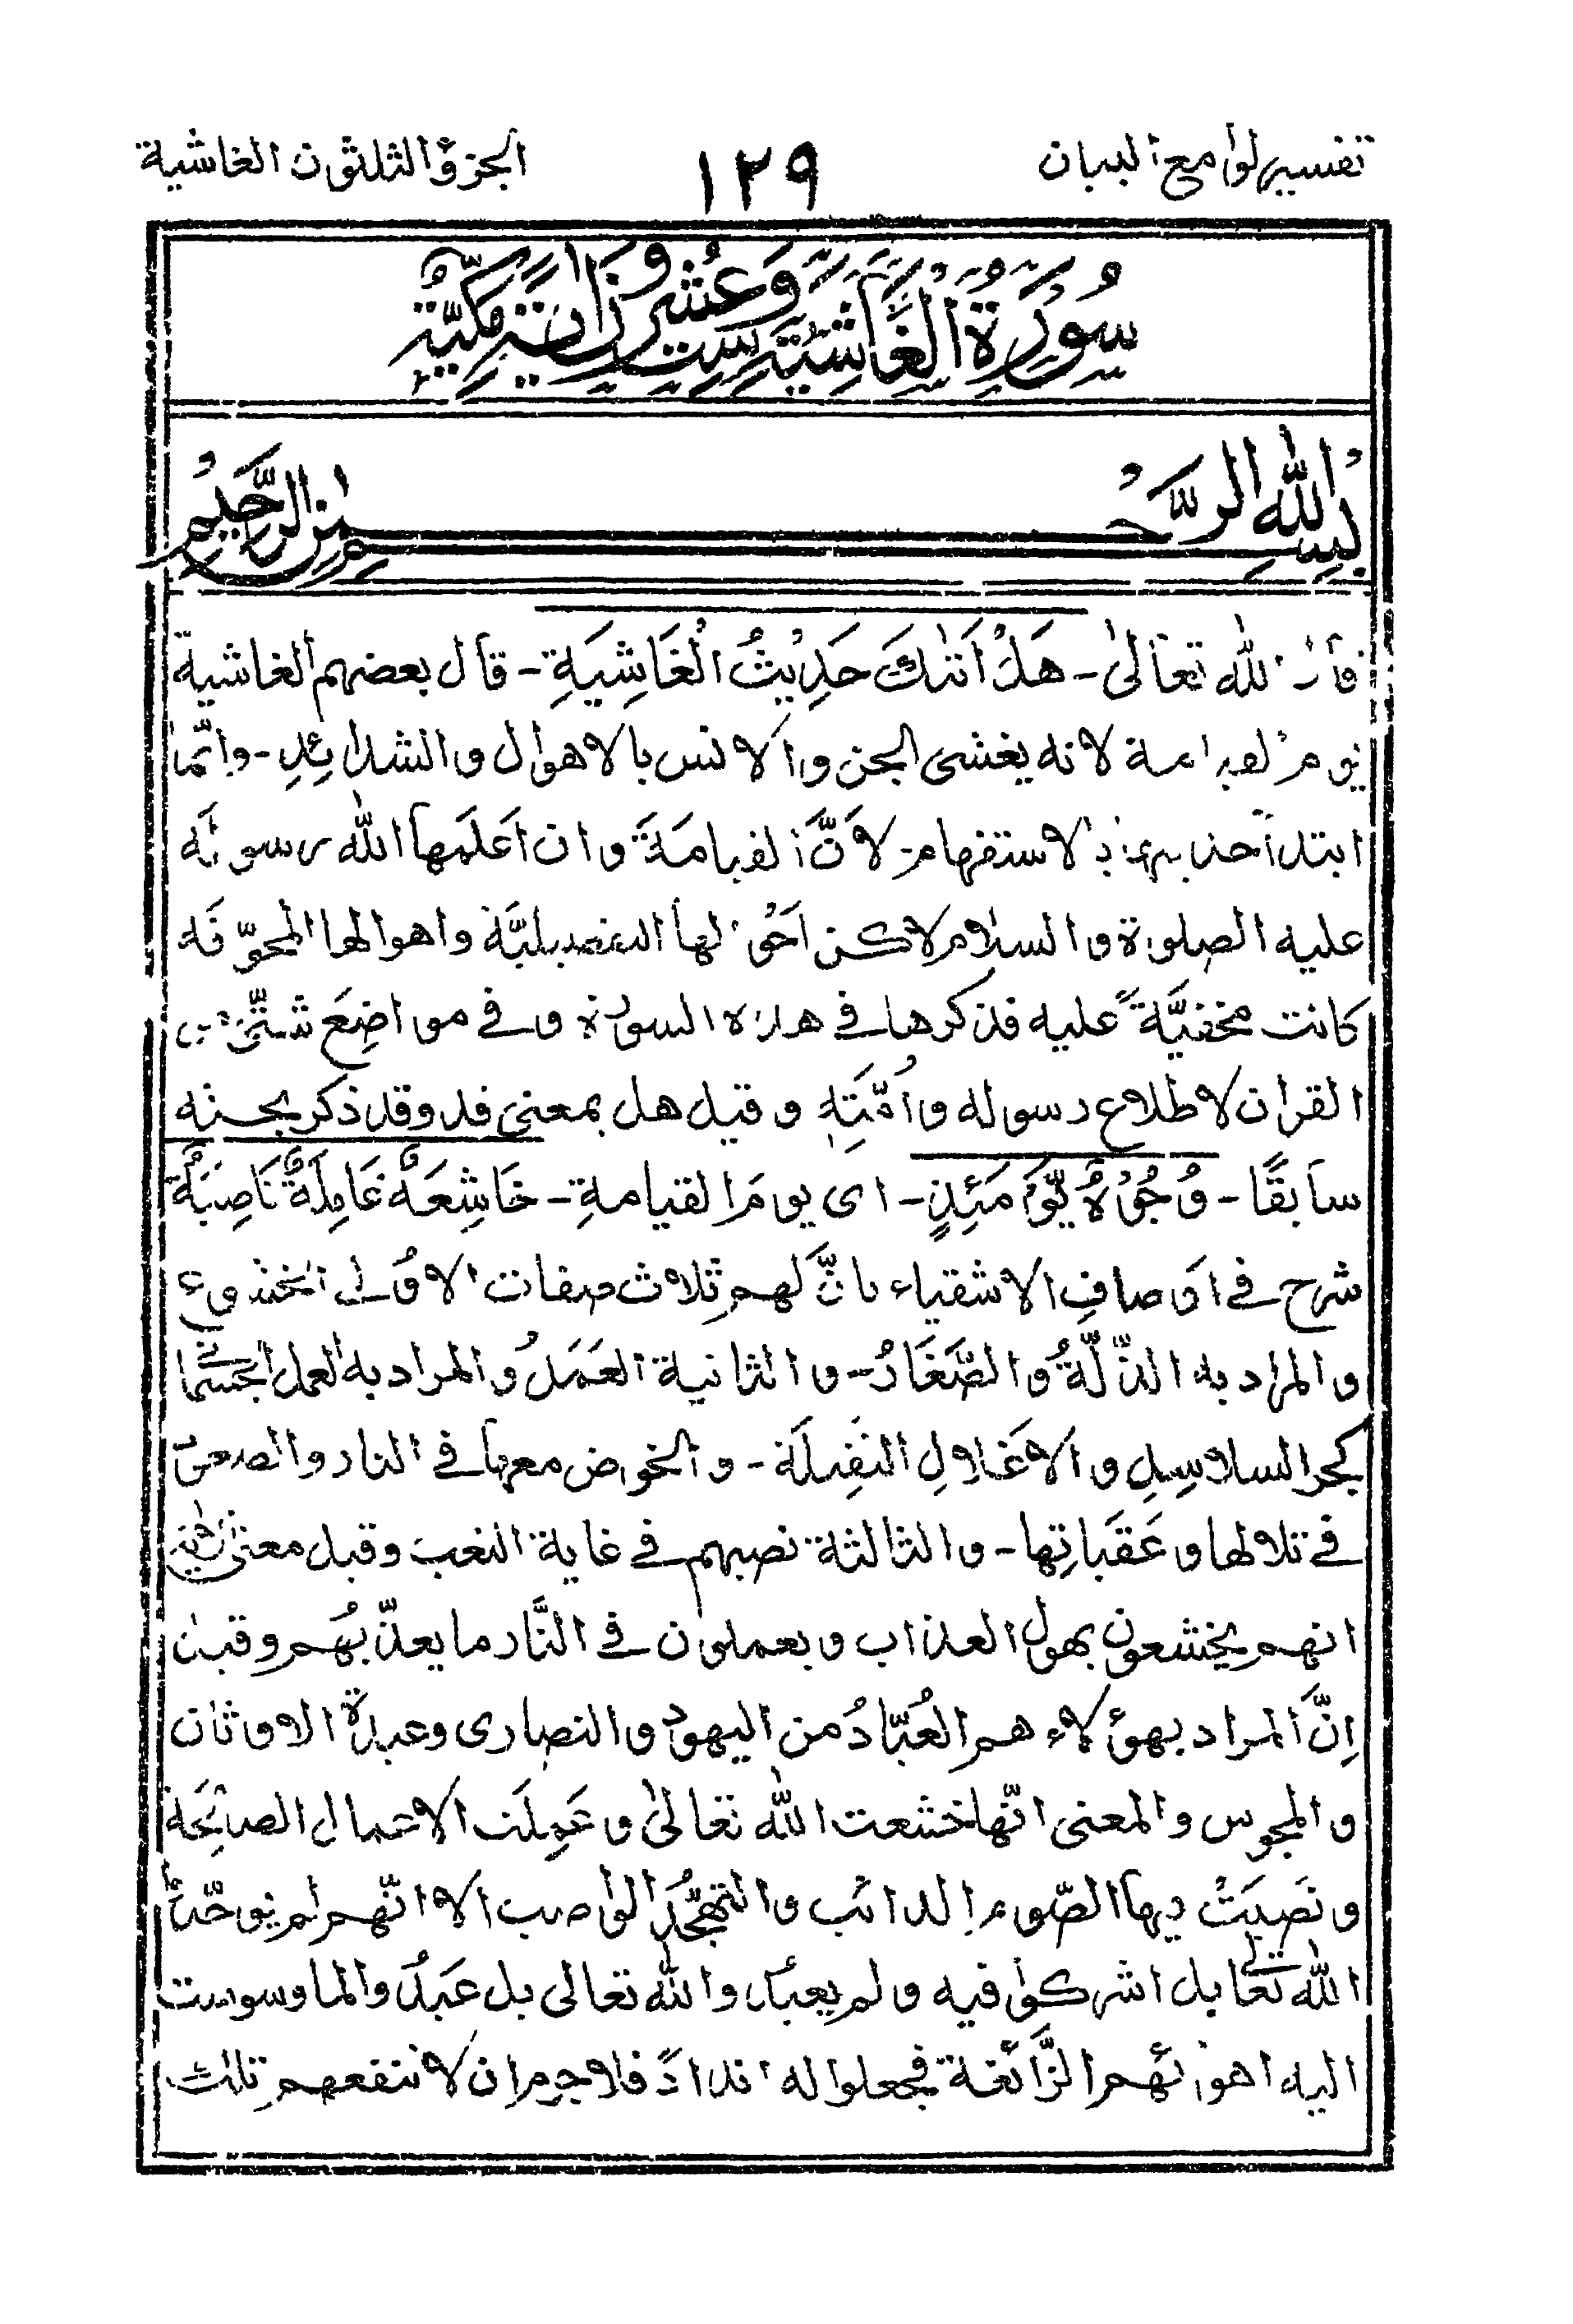 تفسير لوامع البيان
١٢٩
الجزؤ الثلثون الغاشية
سُوْرَةُ الْغَاشِيَةِ سِتٌّ وَّعُشْرُوْنَ اٰيَةً مَكِّيَّةٌ
بِسْمِ اللهِ الرَّحْمٰنِ الرَّحِيْمِ
قال الله تعالىٰ - هَلْ اَتٰىكَ حَدِيْثُ الْغَاشِيَةِ - قال بعضهم الغاشية
يوم القيامة لانه يغشى الجن والانس بالاهوال والشدائدِ - وانّما
ابتدأ بالاستفهام لاَنَّ القيامَةَ وان اَعلَمها الله رسوله
عليه الصلوة والسلام لاكن اَحوالها التفصيليَّة واهوالها المخوّفَه
كانت مخفيَّةً عليه فذكرها فى هذه السورة وفى مواضِعَ شتّىٰ من
القران لاطلاع رسوله واُمّتِهٖ وقيل هل بمعنى قد وقد ذكر بحثه
سابقًا - وُجُوْهٌ يَّوْمَئِذٍ - اى يومَ القيامةِ - خَاشِعَةٌ عَامِلَةٌ نَاصِبَةٌ
شرح فى اوصافِ الاشقياء بانَّ لهم ثلاث صفات الاوُلى الخشوع
والمراد به الذّلّةُ والصَّغَارُ - والثانية العَمَلُ والمراد به العمل
كجر السلاسِلِ والاَغلالِ الثقِيلَة - والخوض معها فى النار والصعود
فى تلالها وعَقَباتِها - والثالثة نصبهم فى غاية التعب وقيل معنى
انهم يخشعون بهول العذاب ويعملون فى النَّار ما يعذّبُهم وقيل
اِنَّ المراد بهؤلاء هم العُبّادُ من اليهود والنصارى وعبدة الاوثان
والمجوس والمعنى انّها خشعت الله تعالىٰ وعَمِلَت الاعمال الصالِحَة
ونَصِبَتْ فيها الصّوم الدائب والتهجّد الواصب الا انّهم لم يوحّدوا
الله تعالى بل اشركوا فيه ولم يعبدوا الله تعالى بل عَبَدُوا لما وسوست
اليه اهوائهم الزَّائغة فجعلوا له انداداً فلا جرم ان لا تنفعهم تلك